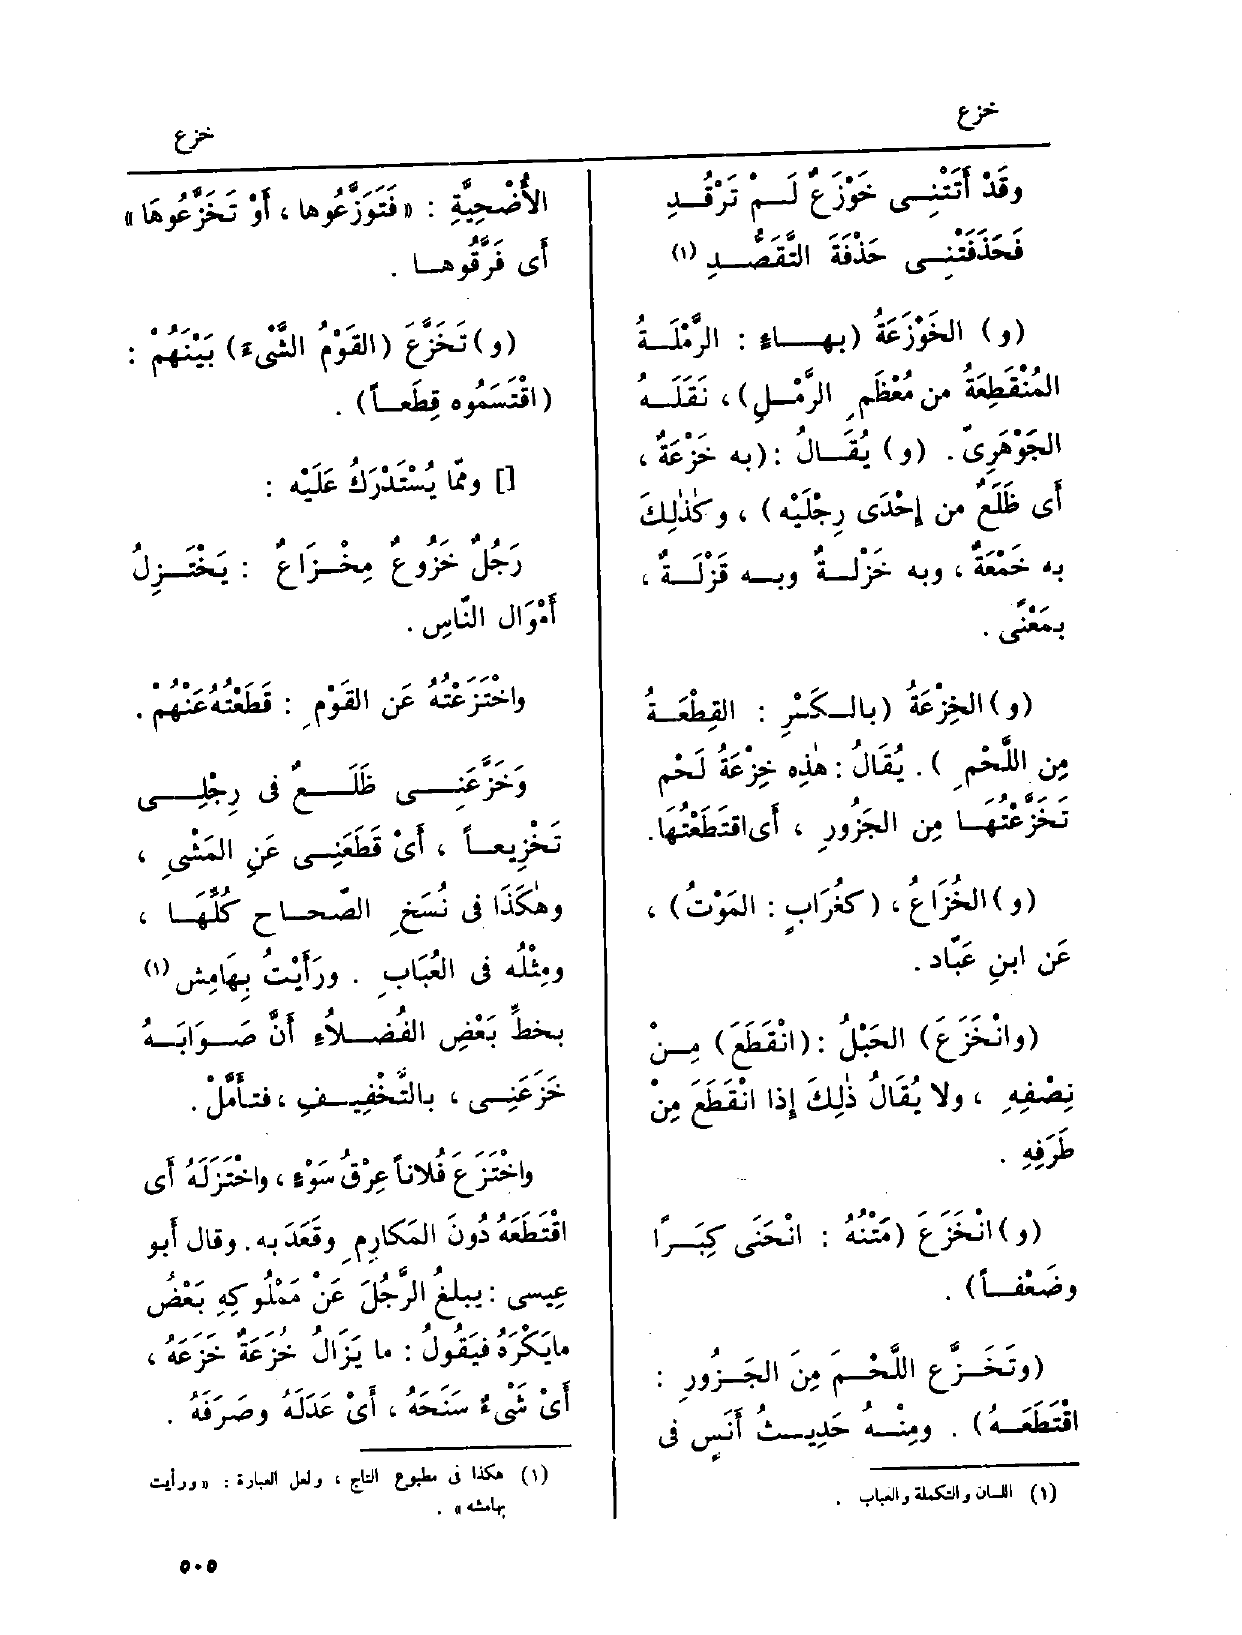 خزع
خزع
وقَدْ أَتَتْنِى خَوْزَعٌ لَمْ تَرْقُدِ
فَحَذَفَتْنِى حَذْفَةَ التَّقَصُّدِ (١)
(و) الخَوْزَعَةُ (بهاءٍ : الرَّمْلَةُ
المُنْقَطِعَةُ من مُعْظَمِ الرَّمْلِ) ، نَقَلَهُ
الجَوْهَرِىّ . (و) يُقَالُ : (به خَزْعَةٌ ،
أَى ظَلَعٌ من إِحْدَى رِجْلَيْه) ، وكَذٰلِكَ
به خَمْعَةٌ ، وبه خَزْلَةٌ وبه قَزْلَةٌ ،
بمَعْنًى .
(و) الخِزْعَةُ (بالكَسْرِ : القِطْعَةُ
مِن اللَّحْمِ ) . يُقَالُ : هٰذِه خِزْعَةُ لَحْمٍ
تَخَزَّعْتُهَا مِن الجَزُورِ ، أَى اقتَطَعْتُهَا.
(و) الخُزَاعُ ، (كغُرَابٍ : المَوْتُ) ،
عَن ابنِ عَبّاد .
(وانْخَزَعَ) الحَبْلُ : (انْقَطَعَ) مِنْ
نِصْفِهِ ، ولا يُقَالُ ذٰلِكَ إِذا انْقَطَعَ مِنْ
طَرَفِهِ .
(و) انْخَزَعَ (مَتْنُهُ : انْحَنَى كِبَرًا
وضَعْفاً) .
(وتَخَزَّع اللَّحْمَ مِنَ الجَزُورِ :
اقْتَطَعَهُ) . ومِنْهُ حَدِيثُ أَنَسٍ فى
(١) اللسان والتكملة والعباب .
الأُضْحِيَّةِ : « فَتَوَزَّعُوها ، أَوْ تَخَزَّعُوهَا »
أَى فَرَّقُوها .
(و) تَخَزَّعَ (القَوْمُ الشَّىءَ) بَيْنَهُمْ :
(اقْتَسَمُوه قِطَعاً) .
[] ومّما يُسْتَدْرَكُ عَلَيْه :
رَجُلٌ خَزُوعٌ مِخْزَاعٌ : يَخْتَزِلُ
أَمْوَالَ النّاسِ .
واخْتَزَعْتُهُ عَن القَوْمِ : قَطَعْتُهُ عَنْهُمْ .
وَخَزَّعَنِى ظَلَعٌ فى رِجْلِى
تَخْزِيعاً ، أَىْ قَطَعَنِى عَنِ المَشْىِ ،
وهٰكَذَا فى نُسَخِ الصّحاح كُلِّهَا ،
ومِثْلُه فى العُبَابِ . ورَأَيْتُ بِهَامِش (١)
بخطِّ بَعْضِ الفُضَلاَءِ أَنَّ صَوَابَهُ
خَزَعَنِى ، بالتَّخْفِيفِ ، فتأَمَّلْ .
واخْتَزَعَ فُلاناً عِرْقُ سَوْءٍ ، واخْتَزَلَهُ أَى
اقْتَطَعَهُ دُونَ المَكارِمِ وقَعَدَ به . وقال أَبو
عِيسى : يبلغُ الرَّجُلَ عَنْ مَمْلُوكِهِ بَعْضُ
مايَكْرَهُ فيَقُولُ : ما يَزَالُ خُزَعَةٌ خَزَعَهُ ،
أَىْ شَىْءٌ سَنَحَهُ ، أَىْ عَدَلَهُ وصَرَفَهُ .
(١) هكذا فى مطبوع التاج ، ولعل العبارة : « ورأيت
بهامشه » .
٥٠٥